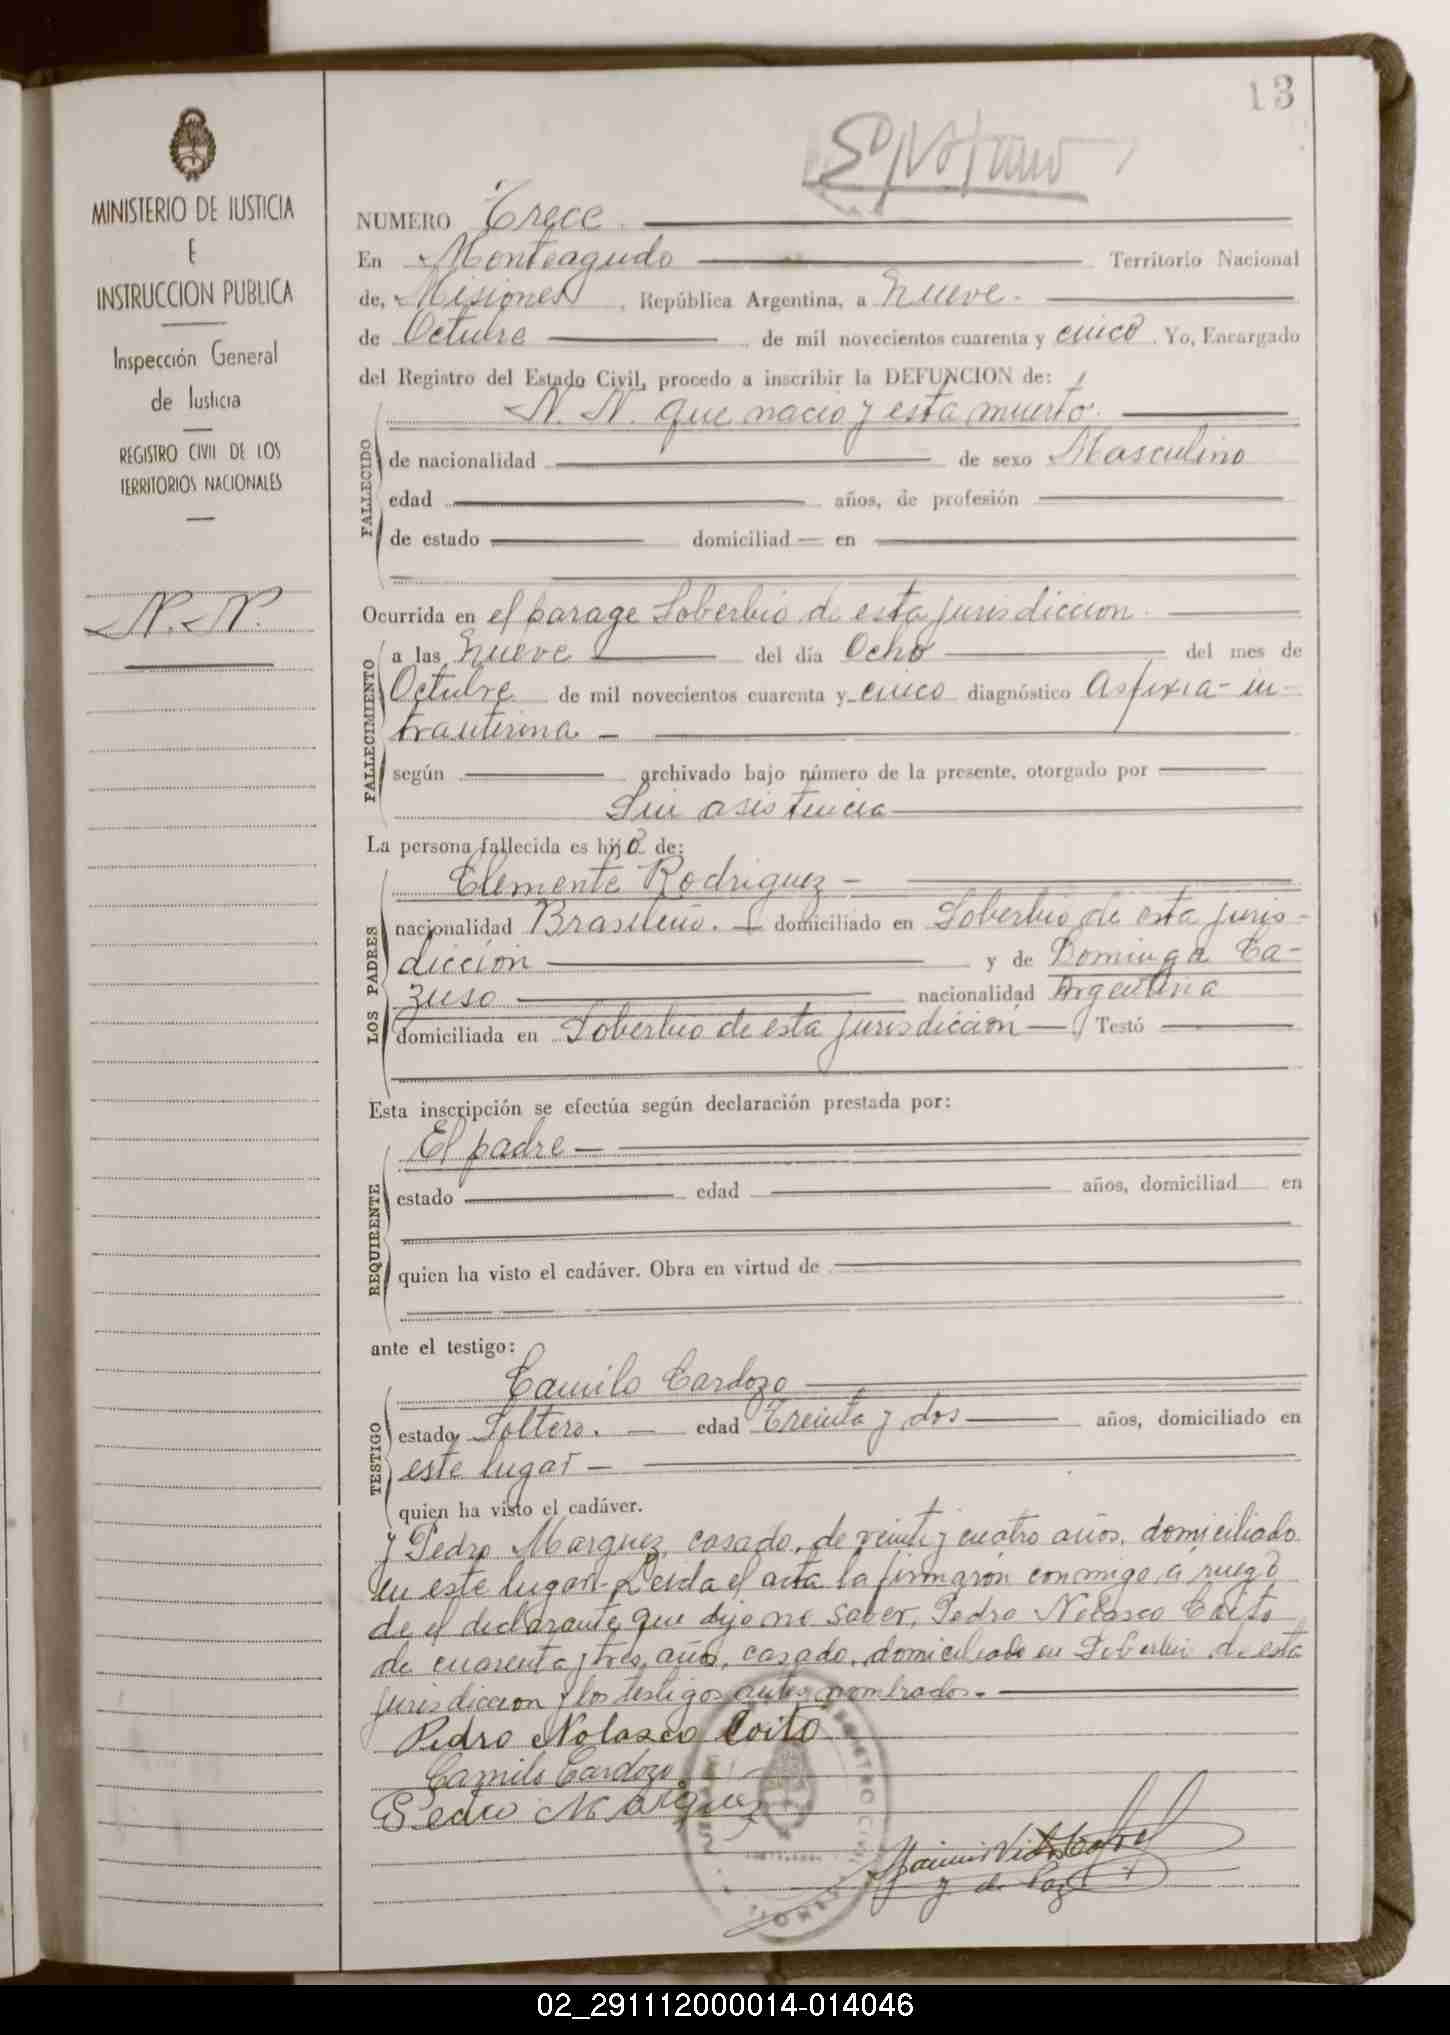 13
MINISTERIO DE JUSTICIA
E
INSTRUCCION PUBLICA
Inspección General
de Justicia
REGISTRO CIVIL DE LOS
TERRITORIOS NACIONALES
N. N.
NUMERO Trece
En Monteagudo Territorio Nacional
de, Misiones, República Argentina, a Nueve.
de Octubre de mil novecientos cuarenta y cinco. Yo, Encargado
del Registro del Estado Civil, procedo a inscribir la DEFUNCION de:
FALLECIDO
N. N. que nacio y esta muerto.
de nacionalidad de sexo Masculino
edad años, de profesión
de estado domiciliad en
Ocurrida en el parage Soberbio de esta jurisdiccion
FALLECIMIENTO
a las Nueve del día Ocho del mes de
Octubre de mil novecientos cuarenta y cinco diagnóstico Asfixia-in-
trauterina -
según archivado bajo número de la presente, otorgado por
Sin asistencia
La persona fallecida es hijo de:
LOS PADRES
Clemente Rodriguez -
nacionalidad Brasileño. - domiciliado en Soberbio de esta juris-
dicción y de Dominga Ca-
zuso nacionalidad Argentina
domiciliada en Soberbio de esta jurisdicción Testó
Esta inscripción se efectúa según declaración prestada por:
REQUIRENTE
El padre -
estado edad años, domiciliad en
quien ha visto el cadáver. Obra en virtud de
ante el testigo:
TESTIGO
Camilo Cardozo
estado Soltero. - edad Treinta y dos años, domiciliado en
este lugar -
quien ha visto el cadáver.
y Pedro Marquez, casado, de veinte y cuatro años, domiciliado
en este lugar.- Leida el acta la firmaron conmigo, a ruego
de el declarante que dijo no saber, Pedro Nolasco Coito
de cuarenta y tres años, casado, domiciliado en Soberbio de esta
jurisdiccion y los testigos antes nombrados.-
Pedro Nolasco Coito
Camilo Cardozo
Pedro Marquez
02_291112000014-014046